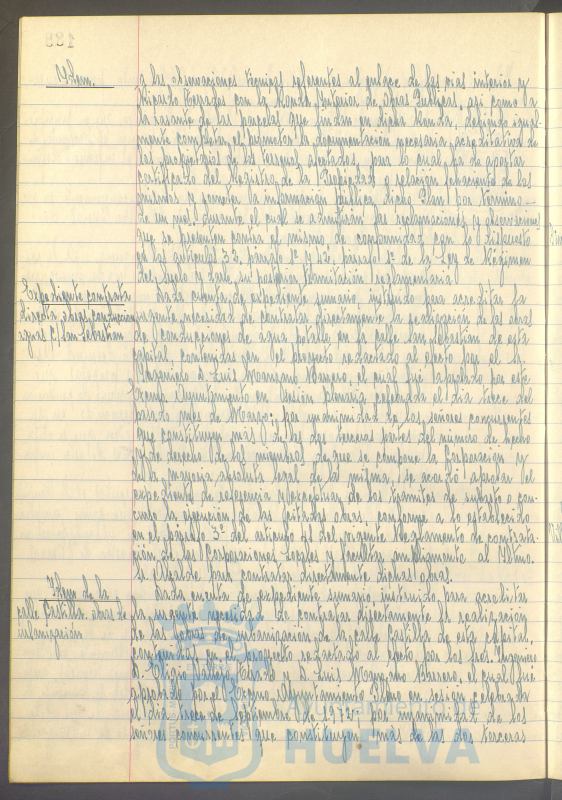 Idem.
a las observaciones técnicas referentes al enlace de las vias interior y
Ricardo Terrades con la Ronda Interior de Obras Publicas, asi como a
la rasante de las parcelas que lindan en dicha Ronda, debiendo igual-
mente completar el promotor la documentación necesaria, acreditativa de
los propietarios de los terrenos afectados, para lo cual ha de aportar
certificado del Registro de la Propiedad y relación fehaciente de los
mismos y someter a información pública dicho Plan por término
de un mes, durante el cual se admitirán las reclamaciones y observaciones
que se presenten contra el mismo de conformidad con lo dispuesto
en los artículos 32, párrafo 1º y 42, párrafo 1º de la Ley de Régimen
del Suelo y darle su posterior tramitación reglamentaria.
Expediente contrata
directa obras conducción
aguas C/ San Sebastian
Dada cuenta de expediente sumario, instruido para acreditar la
urgente necesidad de contratar directamente la realización de las obras
de conducciones de agua potable en la calle San Sebastián de esta
capital, contenidas en el proyecto redactado al efecto por el Sr.
Ingeniero D. Luis Manzano Barrero, el cual fué aprobado por este
Excmo. Ayuntamiento en sesión plenaria celebrada el día trece del
pasado mes de Marzo; por unanimidad de los señores concurrentes
que constituyen más de las dos terceras partes del número de hecho
y de derecho de los miembros de que se compone la Corporación y
de la mayoria absoluta legal de la misma, se acordó aprobar el
expediente de referencia y exceptuar de los trámites de subasta o con-
curso la ejecución de las citadas obras, conforme a lo establecido
en el párrafo 3º del artículo 41 del vigente Reglamento de contrata-
ción de las Corporaciones Locales y facultar ampliamente al Iltmo.
Sr. Alcalde para contratar directamente dichas obras.
Idem de la
calle Castilla, obras de
urbanización
Dada cuenta de expediente sumario, instruido para acreditar
la urgente necesidad de contratar directamente la realización
de las obras de urbanización de la calle Castilla de esta capital,
contenidas en el proyecto redactado al efecto por los Sres. Ingeniero
D. Luis Manzano Barrero, el cual fué
aprobado por el Excmo. Ayuntamiento Pleno en sesión celebrada
el día trece de Septiembre de 1972; por unanimidad de los
señores concurrentes que constituyen más de las dos terceras
Ayuntamiento de
HUELVA